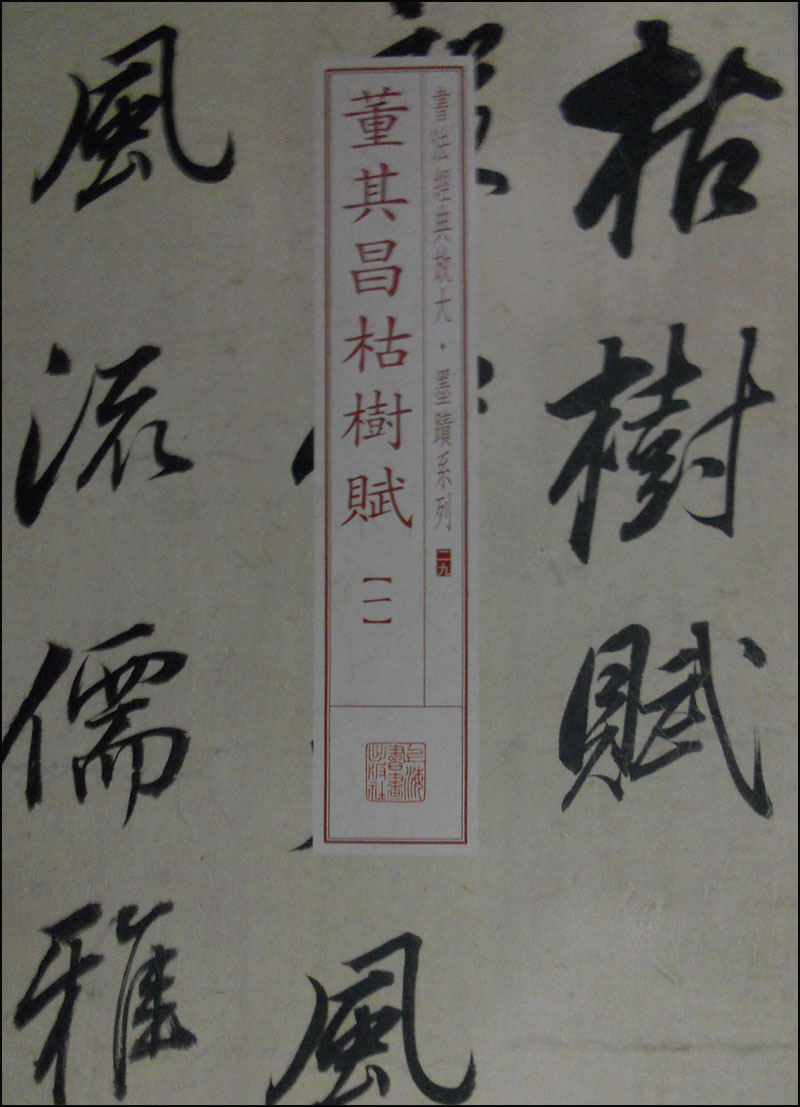 枯樹賦
風
風流儒雅
書法經典放大·墨蹟系列 二九
董其昌枯樹賦
【一】
上海書畫出版社